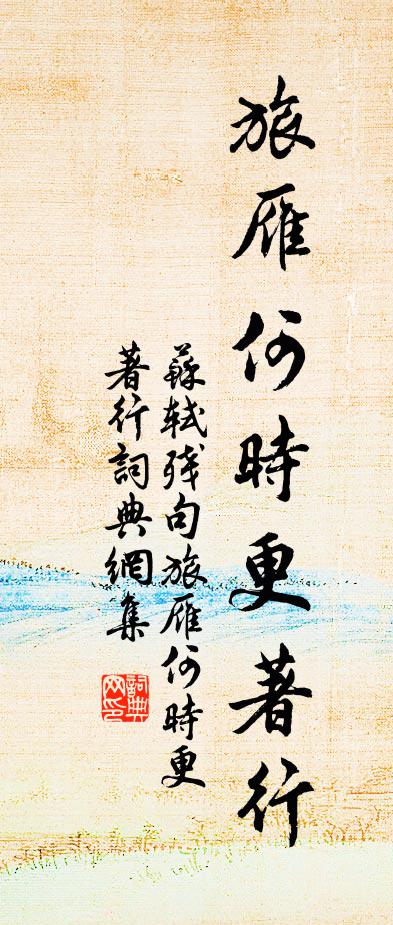 旅雁何時更著行
蘇軾殘句旅雁何時更
著行詞典網集
詞典
网印